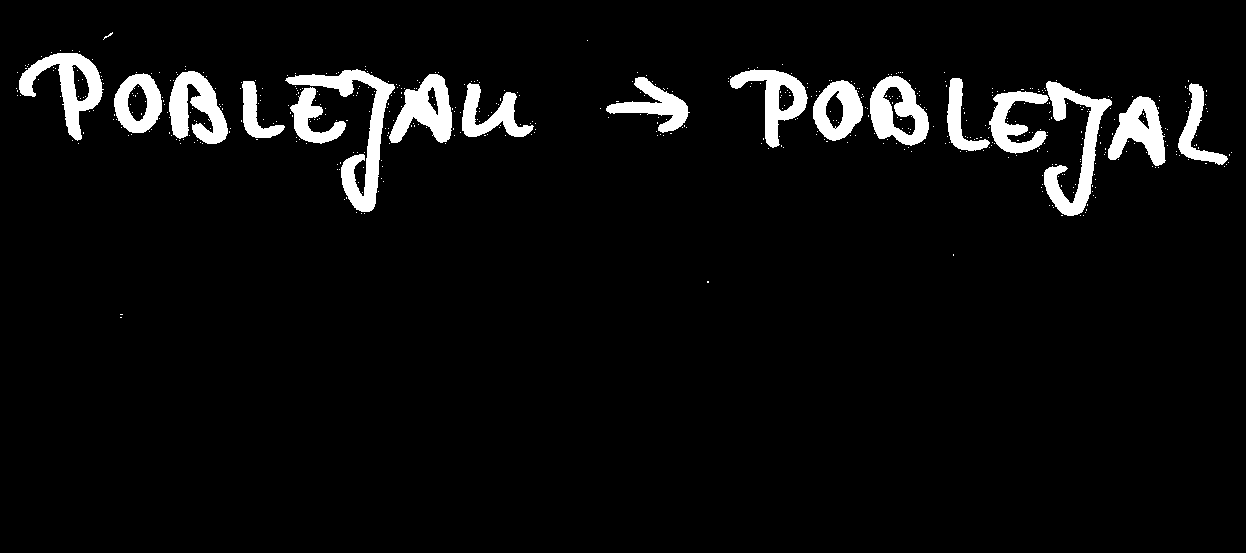 POBLEJAU → POBLEJAL